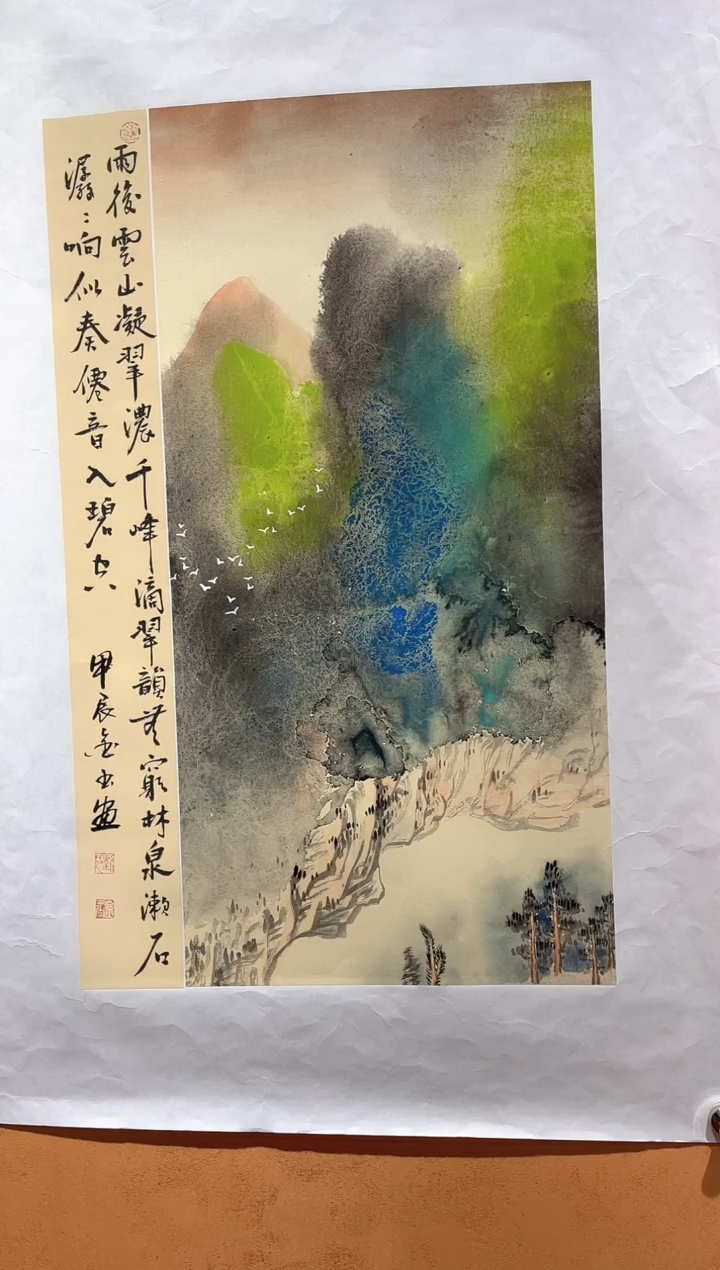 雨後雲山凝翠濃千峰滴翠韻無窮林泉漱石
潺〻响似奏僊音入碧空
甲辰金書畫